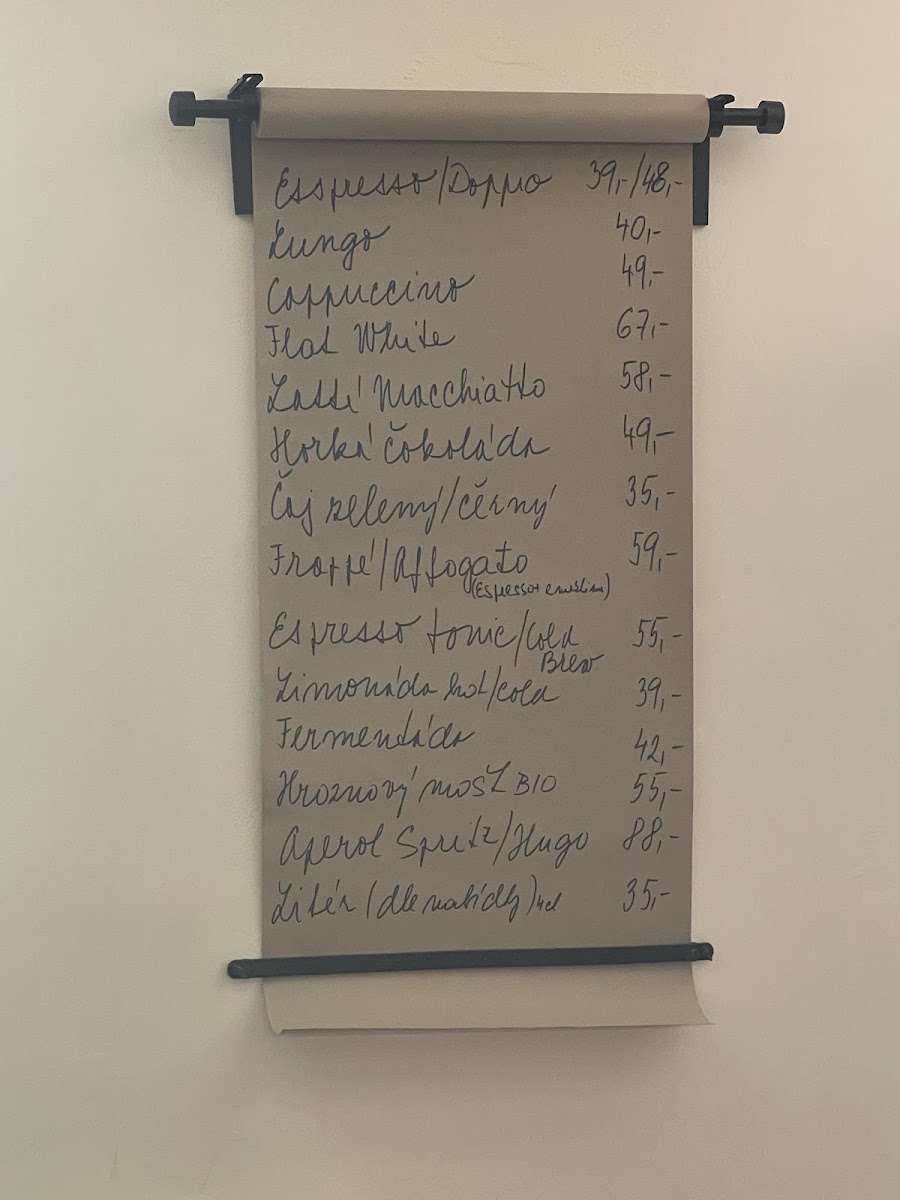 Esspresso/Doppio 39,-/48,-
Lungo 40,-
Cappuccino 49,-
Flat White 67,-
Latté Macchiatto 58,-
Horká čokoláda 49,-
Čaj zelený/čěrný 35,-
Frappé/Affogato 59,-
(Espresso+
Espresso tonic/Cold 55,-
Brew
Limonáda hot/cold 39,-
Fermentáda 42,-
Hroznový mošt BIO 55,-
Aperol Spritz/Hugo 88,-
Likér (dle nabídky) 4cl 35,-